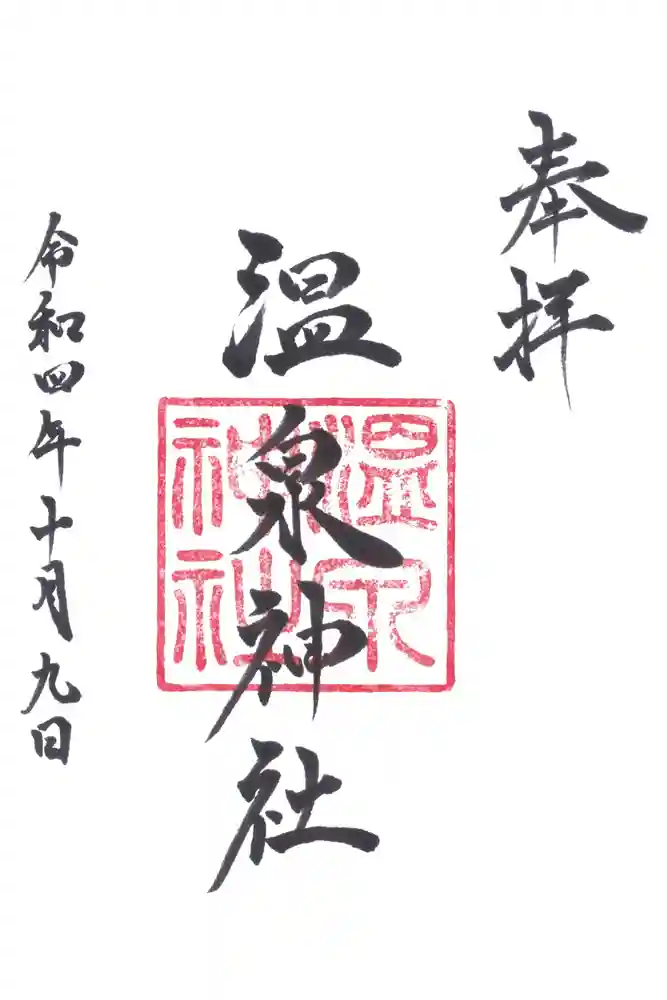 奉拝
温泉神社
温泉
神社
令和四年十月九日